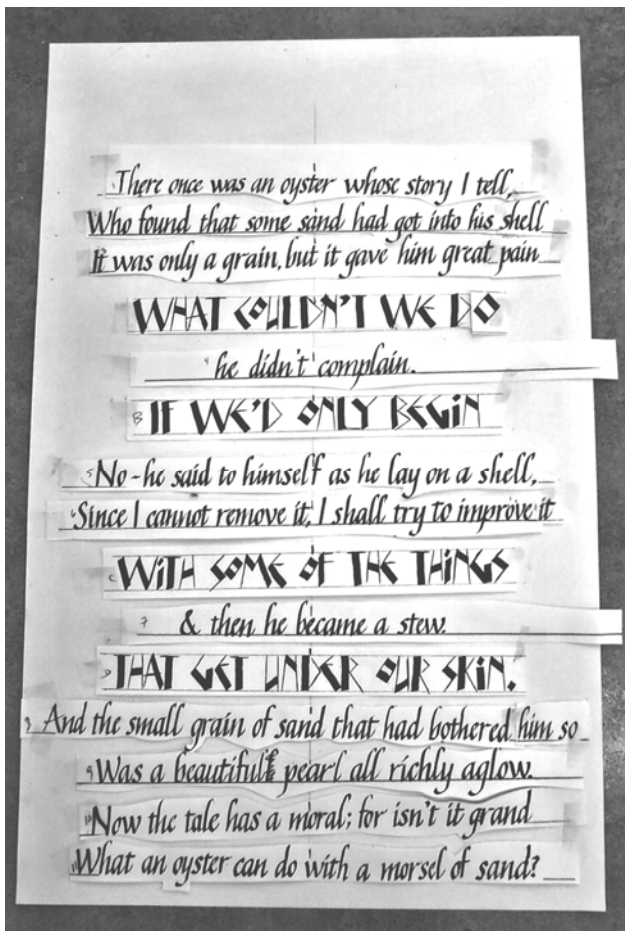 There once was an oyster whose story I tell,
Who found that some sand had got into his shell
It was only a grain, but it gave him great pain
WHAT COULDN'T WE DO
he didn't complain.
B IF WE'D ONLY BEGIN
5 No - he said to himself as he lay on a shell,
Since I cannot remove it, I shall try to improve it
C WITH SOME OF THE THINGS
7 & then he became a stew.
D THAT GET UNDER OUR SKIN.
And the small grain of sand that had bothered him so
9 Was a beautiful pearl all richly aglow.
10 Now the tale has a moral; for isn't it grand
11 What an oyster can do with a morsel of sand?